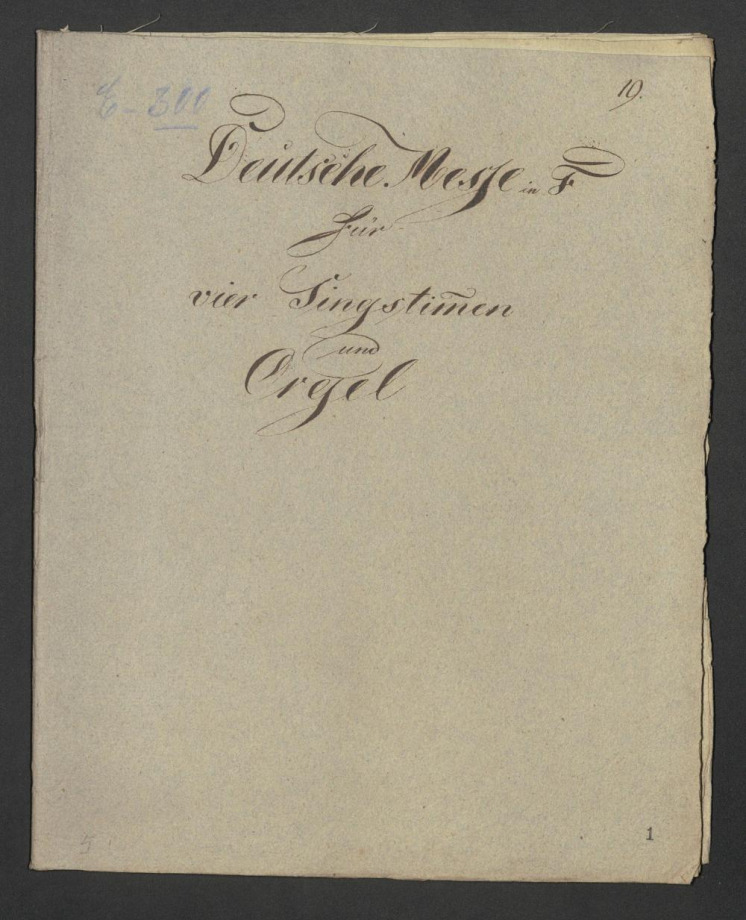 E-300
19.
Deutsche Messe in F
für
vier Singstim̅en
und
Orgel
5
1